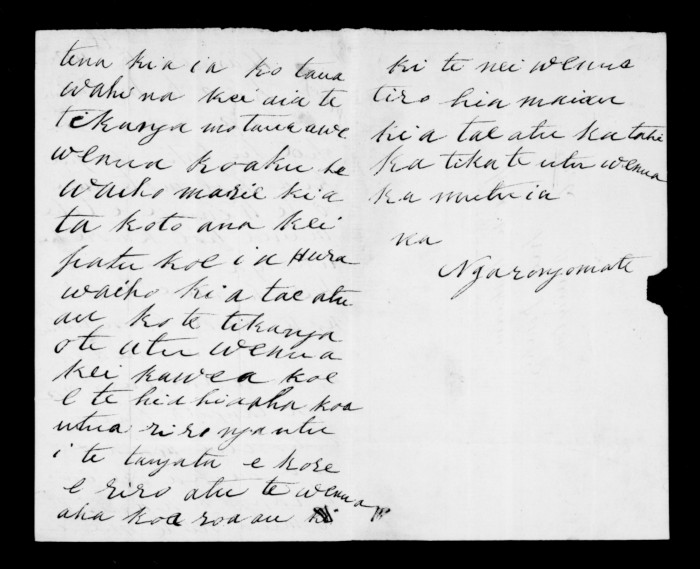 tena kia ia ko taua
wahi na kei aia te
tikanga mo taua
wenua koaku he
waiho marie kia
ta koto ana kei
patu koe ia Hura
waiho kia tae atu
au ko te tikanga
o te utu wenua
kei kawea koe
e te hiahia koa
utua riro nga utu
i te tangata e kore
e riro atu te wenua
aha koa roa au ki
ki te nei wenua
tiro hia maiau
kia tae atu ka tahi
ka tika te utu wenua
ka mutu ia
na
Ngarongomate